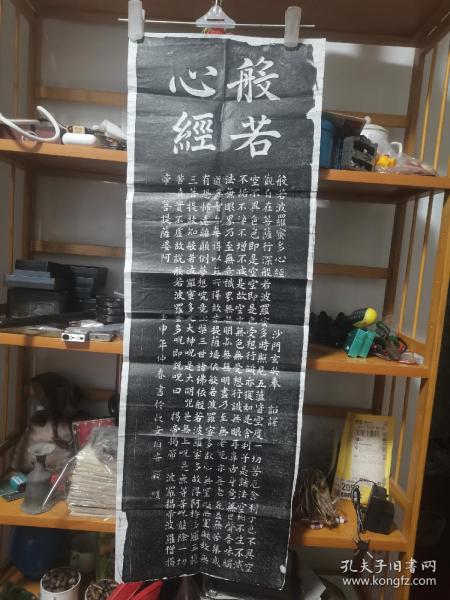 般若
心經
般若波羅蜜多心經
沙門玄奘奉 詔譯
觀自在菩薩行深般若波羅蜜多時照見五蘊皆空度一切苦厄舍利子色不異空
空不異色色即是空空即是色受想行識亦復如是舍利子是諸法空相不生不滅
不垢不淨不增不減是故空中無色無受想行識無眼耳鼻舌身意無色聲香味觸
法無眼界乃至無意識界無無明亦無無明盡乃至無老死亦無老死盡無苦集滅
道無智亦無得以無所得故菩提薩埵依般若波羅蜜多故心無罣礙無罣礙故無
有恐怖遠離顛倒夢想究竟涅槃三世諸佛依般若波羅蜜多故得阿耨多羅三藐
三菩提故知般若波羅蜜多是大神咒是大明咒是無上咒是無等等咒能除一切
苦真實不虛故說般若波羅蜜多咒即說咒曰 揭帝揭帝 波羅揭帝波羅僧揭
帝 菩提薩婆訶
壬申年仲春書於
孔夫子旧书网
www.kongfz.com